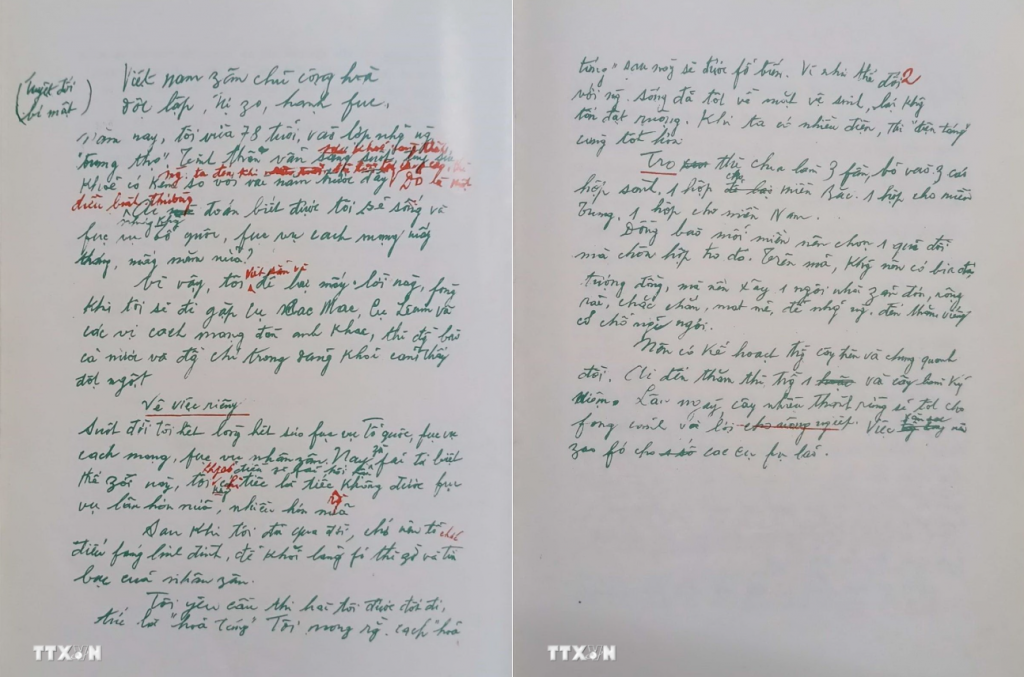 (tuyệt đối
bí mật)
Việt nam zân chủ cộng hoà
độc lập, tự zo, hạnh fúc.
Năm nay, tôi vừa 78 tuổi, vào lớp nhữ ng
"trung thọ". Tinh thần vẫn
khoẻ có kém so với vài năm trước đây.
ng. ta đến khi
Đó là
điều bình thường
Ai đoán biết được tôi sẽ sống và
fục vụ tổ quốc, fục vụ cách mạng mấy
tháng, mấy năm nữa?
Vì vậy, tôi để lại mấy lời này, fòng
viết sẵn và
khi tôi sẽ đi gặp cụ Các Mác, cụ Lênin và
các vị cách mạng đàn anh khác, thì đg bào
cả nước và đg chí trong đảng khỏi cảm thấy
đột ngột.
Về việc riêng
Suốt đời tôi hết lòng hết sức fục vụ tổ quốc, fục vụ
cách mạng, fục vụ nhân zân. Nay zù fải từ biệt
thế zới này, tôi
không có điều gì fải hối hận
chỉ tiếc là tiếc không được fục
vụ lâu hơn nữa, nhiều hơn nữa
Sau khi tôi đã qua đời, chớ nên tổ chức
điếu fúng linh đình, để khỏi lãng fí thì zờ và tiền
bạc của nhân zân.
Tôi yêu cầu thi hài tôi được đốt đi,
tức là "hoả táng". Tôi mong rg cách "hoả
TTXVN
2
táng" sau này sẽ được fổ biến. Vì như thế đối
với ng. sống đã tốt về mặt vệ sinh, lại khg
tốn đất ruộng. Khi ta có nhiều điện, thì "điện táng"
càng tốt hơn
Tro thì chia làm 3 fần, bỏ vào 3 cái
hộp sành, 1 hộp cho miền Bắc. 1 hộp cho miền
Trung. 1 hộp cho miền Nam.
Đồng bào mỗi miền nên chọn 1 quả đồi
mà chôn hộp tro đó. Trên mả, khg nên có bia đá
tượng đồng, mà nên xây 1 ngôi nhà zản đơn, rộng
rãi, chắc chắn, mát mẻ, để nhữ ng. đến thăm viếng
có chỗ nghỉ ngơi.
Nên có kế hoạch trg cây trên và chung quanh
đồi. Ai đến thăm thì trg 1 vài cây làm kỷ
niệm. Lâu ngày, cây nhiều thành rừng sẽ tốt cho
fong cảnh và lợi cho nông nghiệp. Việc săn sóc nên
zao fó cho các cụ fụ lão.
TTXVN